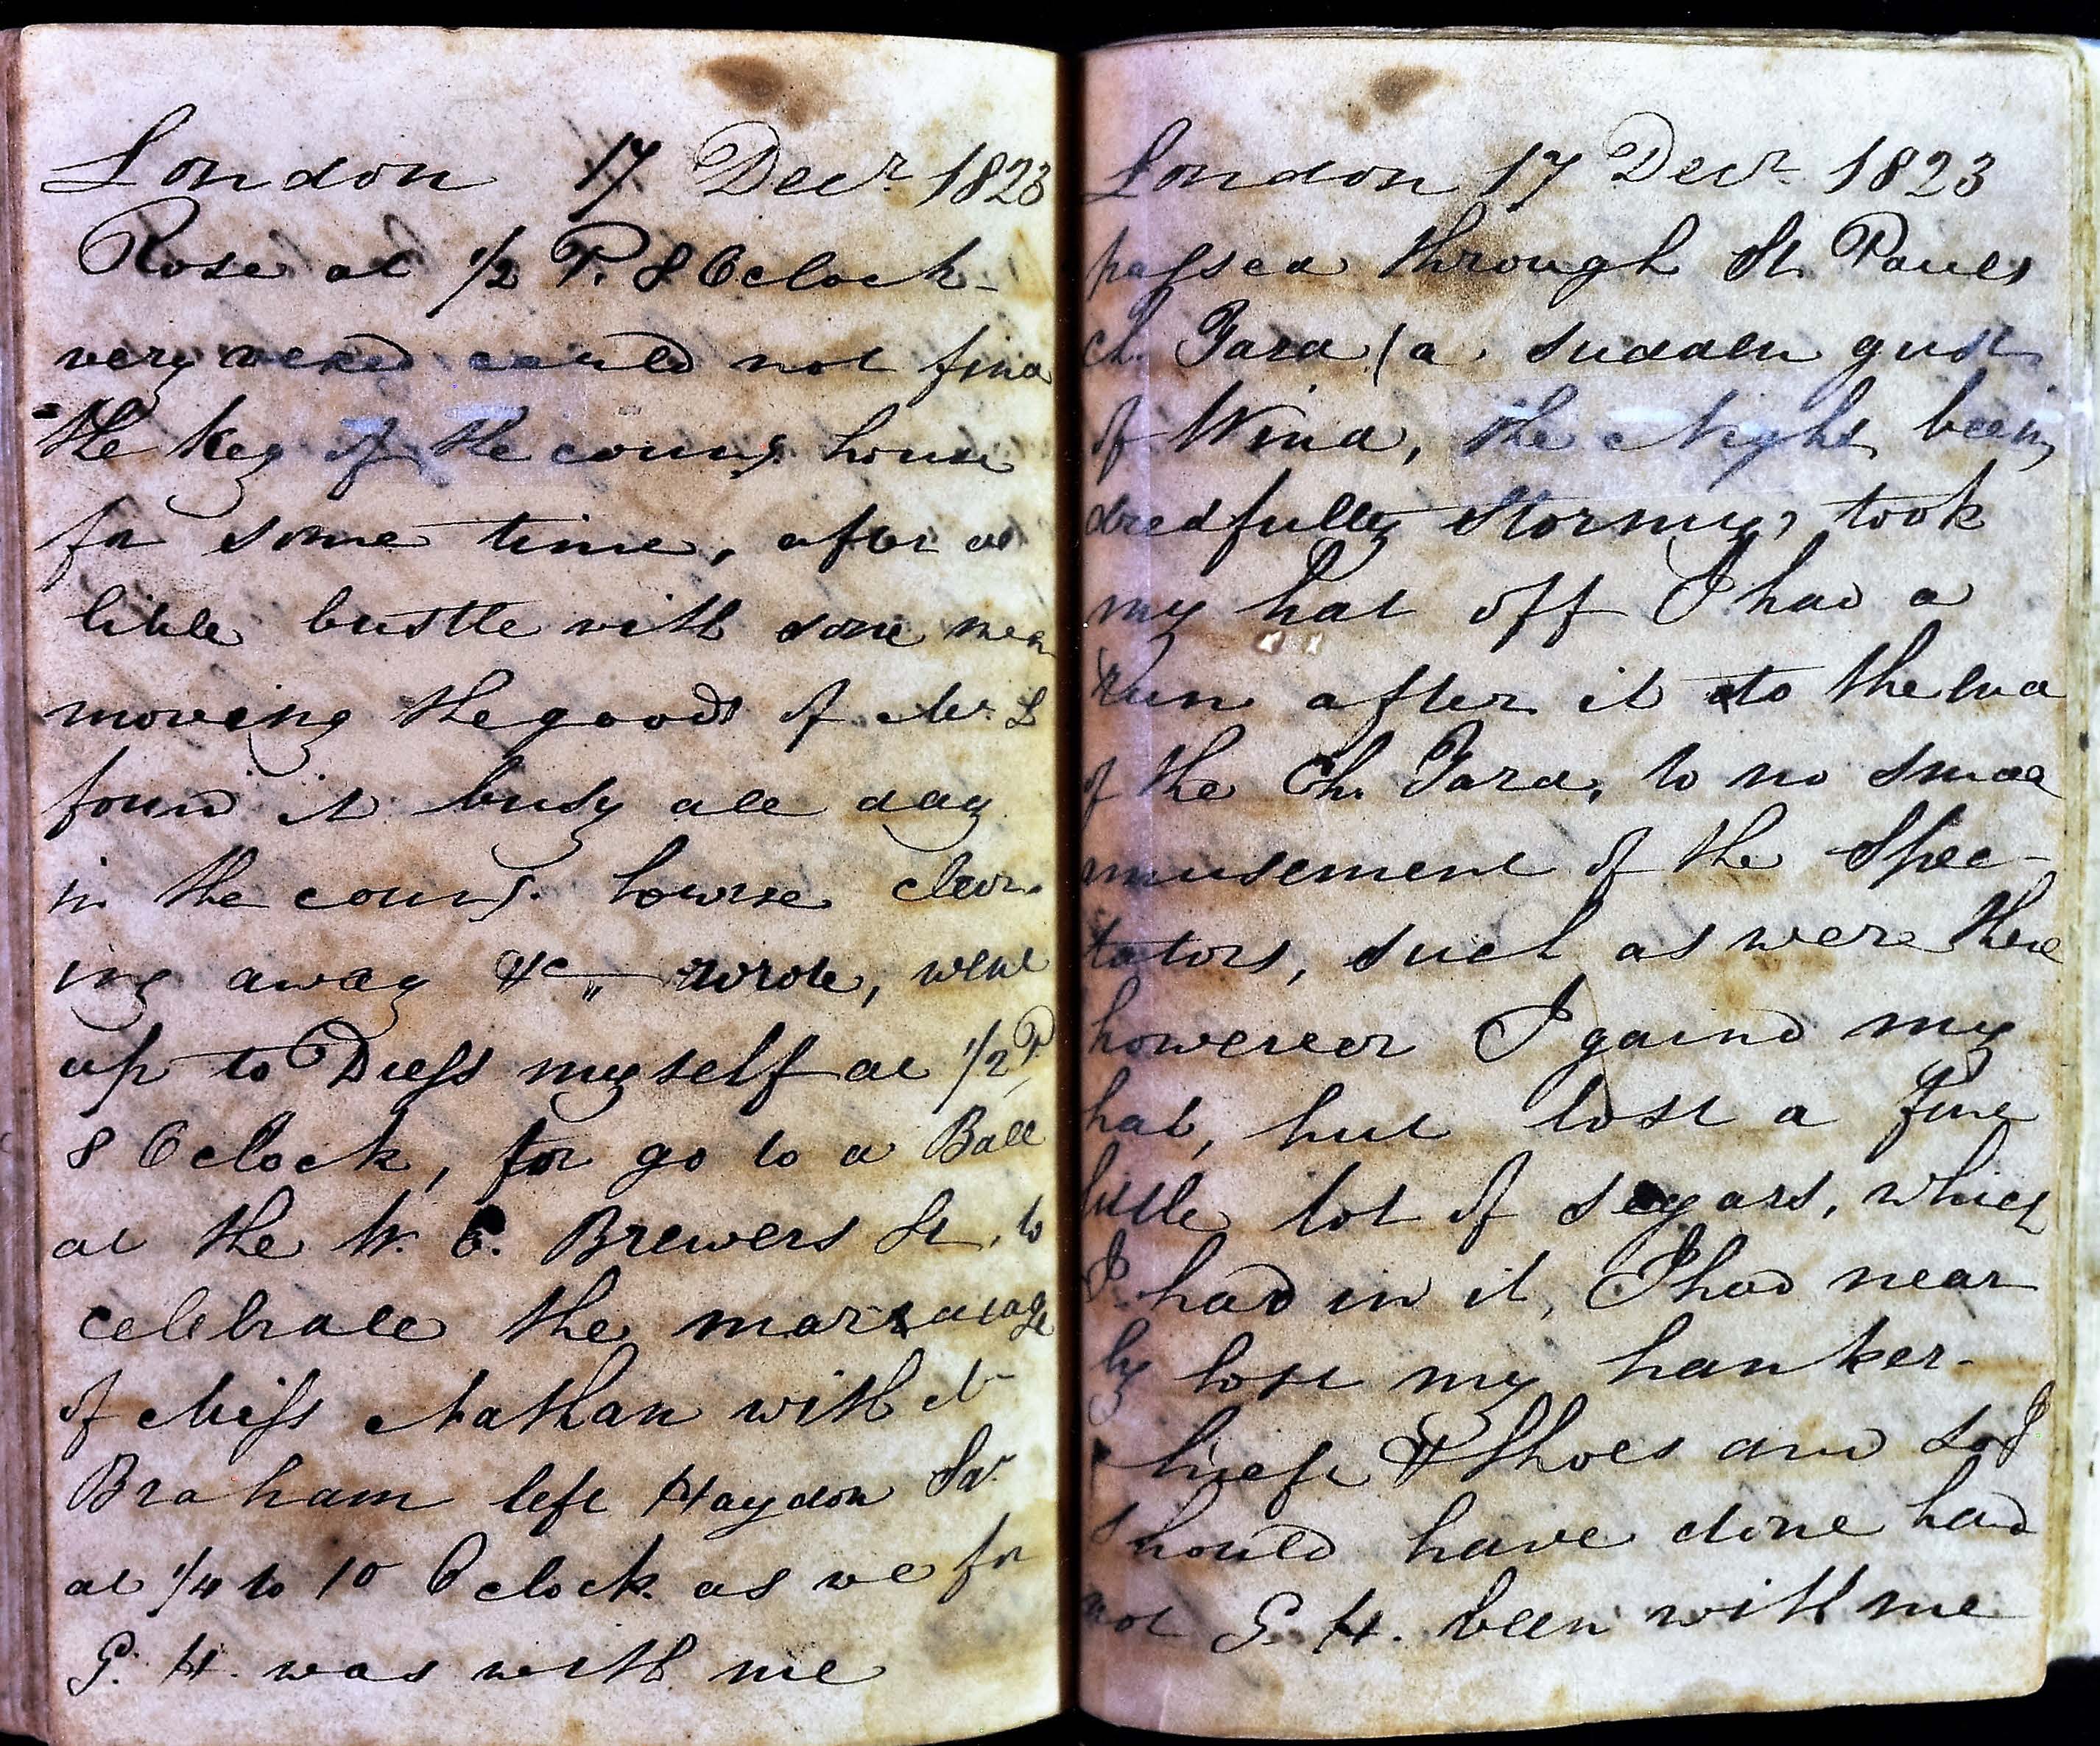 London 17 Decr. 1823
Rose at 1/2 P. 8 Oclock -
very vexed could not find
the key of the countg. house
for some time, after a
little bustle with some men
moving the goods of Mr. L
found it busy all day
in the countg. howse clear-
ing away &c wrote, went
up to Dress myself at 1/2 P.
8 Oclock, for go to a Ball
at the W. E. Brewers St. to
celebrate the marraiage
of Miss Nathan with Mr
Braham left Haydon Sqr.
at 1/4 to 10 Oclock as we for
G. H. was with me
London 17 Decr. 1823
passed through St. Pauls
ch. Yard (a sudden gust
of Wind, the Night being
dredfully stormy, took
my hat off I had a
run after it to the end
of the Ch. Yard, to no small
amusement of the Spec-
tators, such as were there
however I gaind my
hat, but lost a fine
little lot of segars, which
I had in it, I had near
ly lost my hanker-
chief & Shoes and so I
should have done had
not G. H. been with me